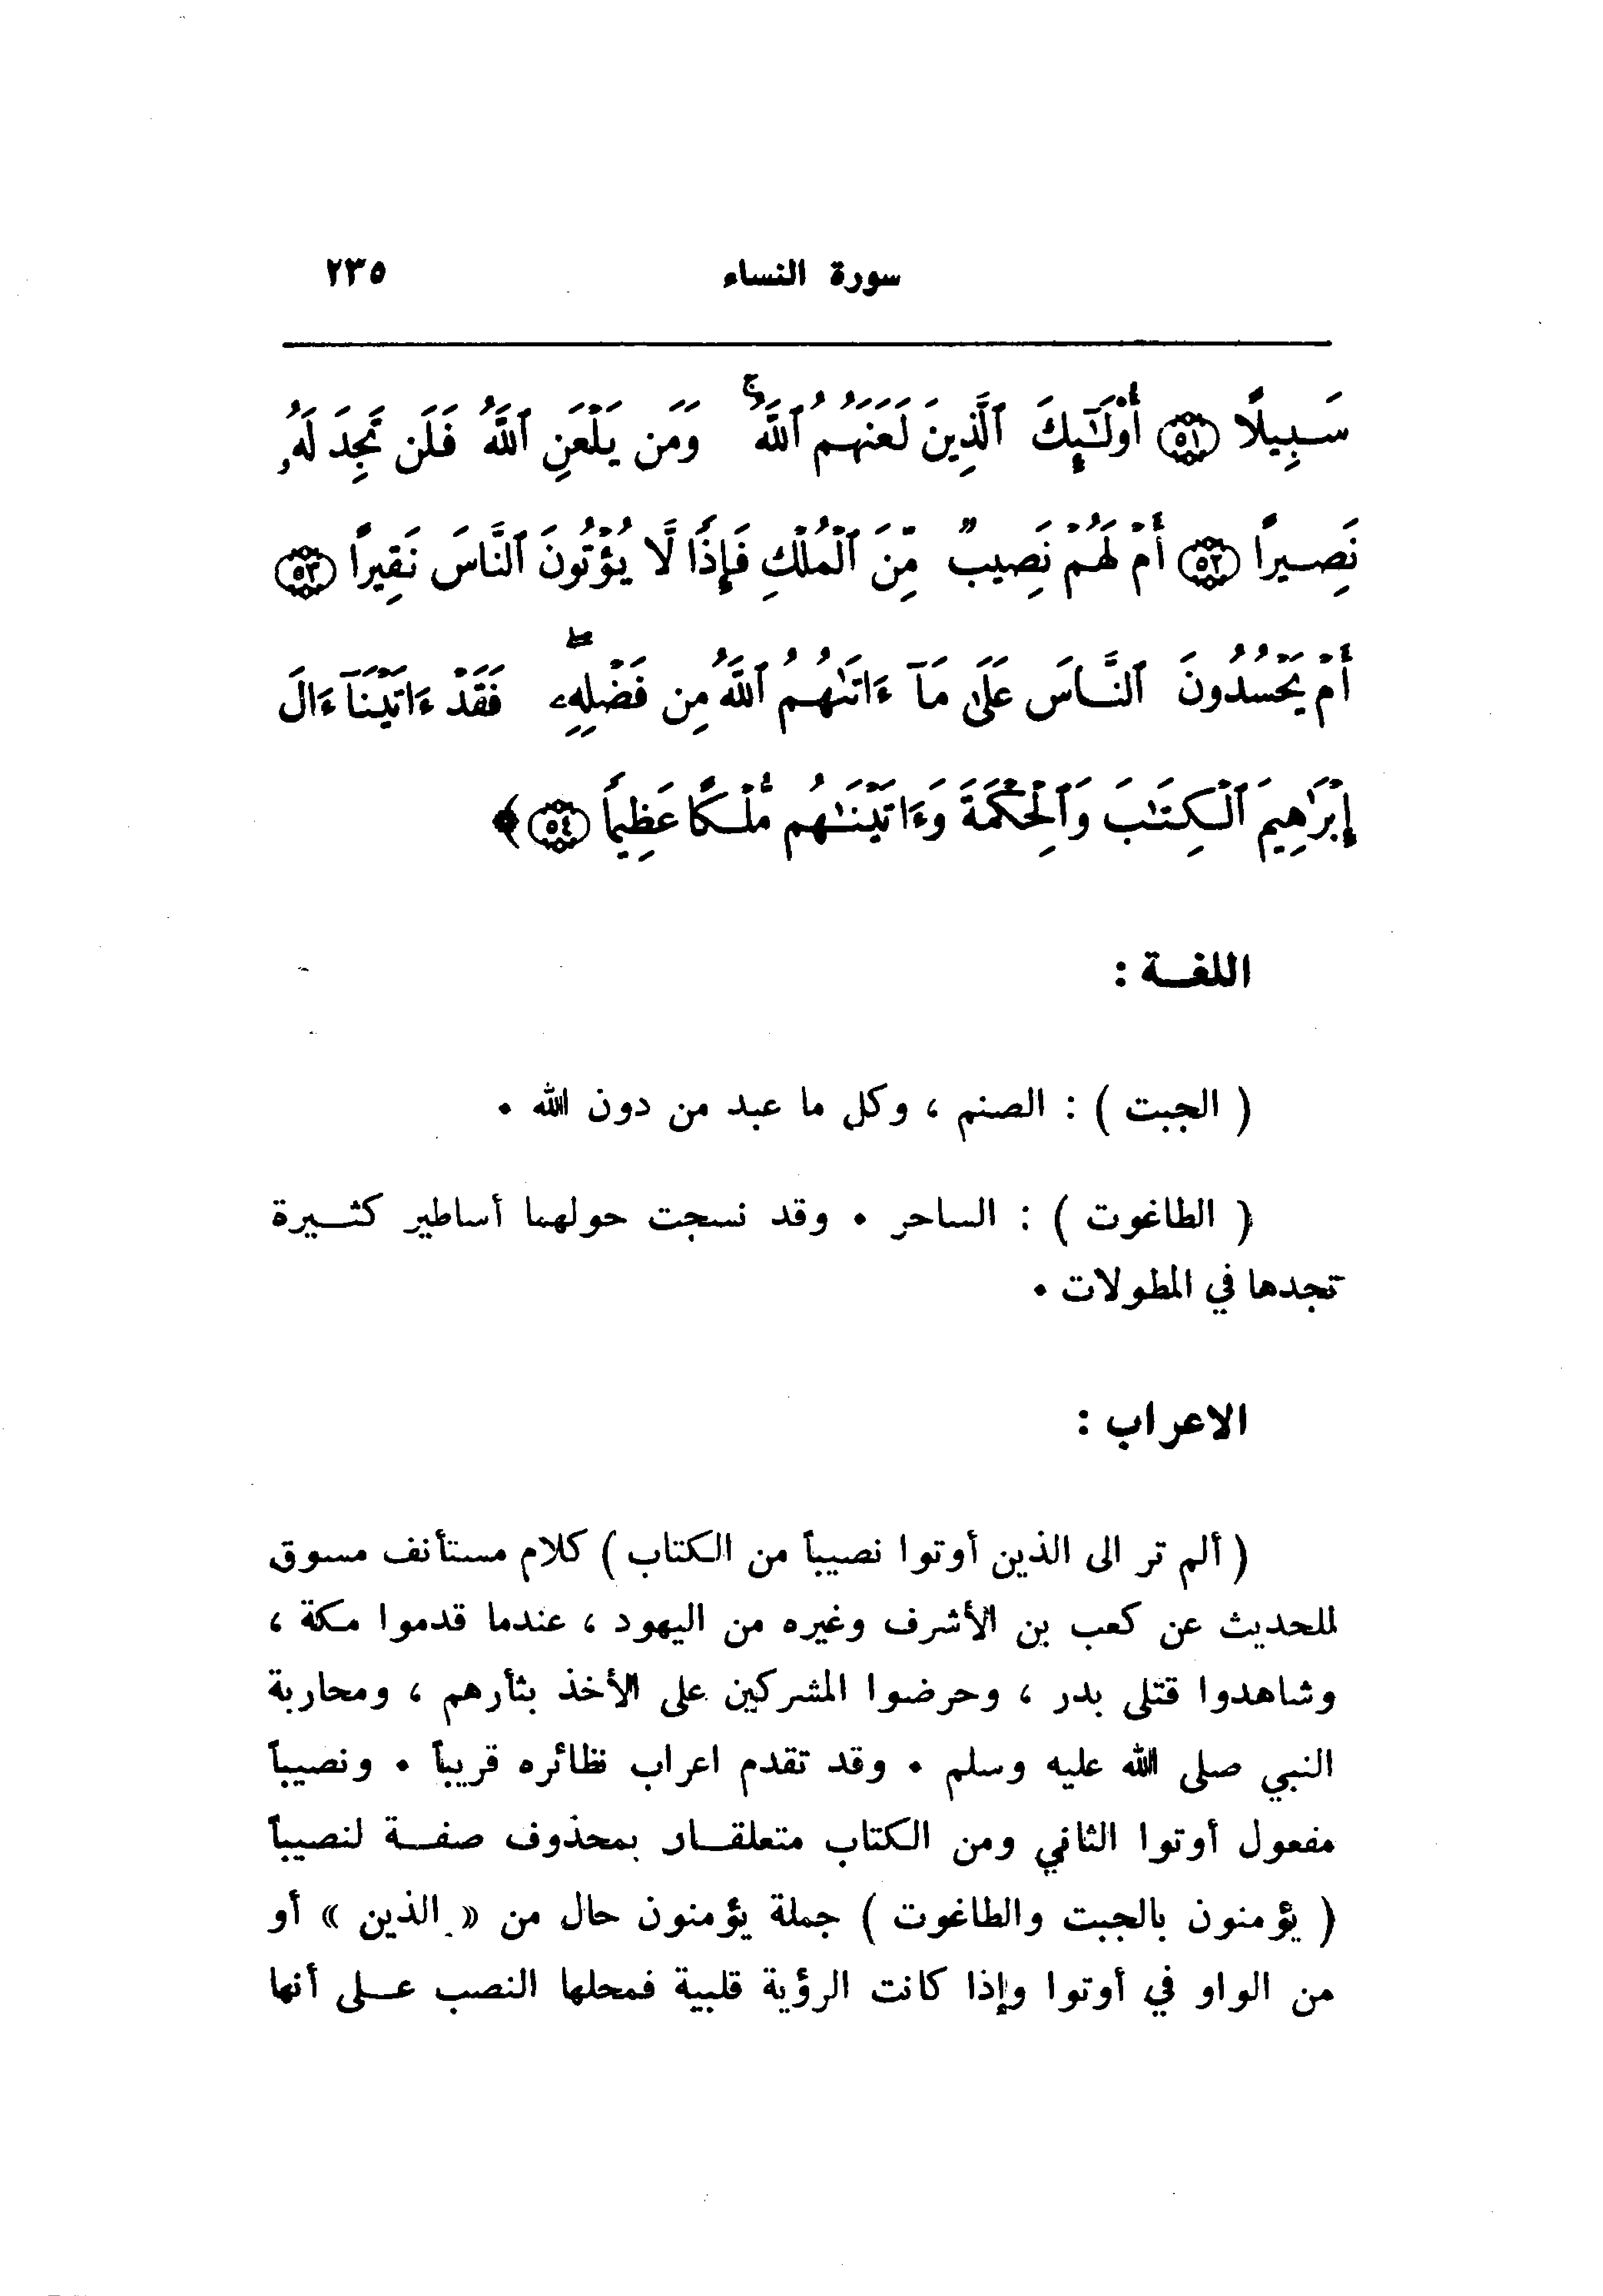 سورة النساء ٢٣٥
سَبِيلًا ﴿٥١﴾ أُوْلَٰٓئِكَ ٱلَّذِينَ لَعَنَهُمُ ٱللَّهُ ۖ وَمَن يَلْعَنِ ٱللَّهُ فَلَن تَجِدَ لَهُۥ
نَصِيرًا ﴿٥٢﴾ أَمْ لَهُمْ نَصِيبٌ مِّنَ ٱلْمُلْكِ فَإِذًا لَّا يُؤْتُونَ ٱلنَّاسَ نَقِيرًا ﴿٥٣﴾
أَمْ يَحْسُدُونَ ٱلنَّاسَ عَلَىٰ مَآ ءَاتَىٰهُمُ ٱللَّهُ مِن فَضْلِهِۦ ۖ فَقَدْ ءَاتَيْنَآ ءَالَ
إِبْرَٰهِيمَ ٱلْكِتَٰبَ وَٱلْحِكْمَةَ وَءَاتَيْنَٰهُم مُّلْكًا عَظِيمًا ﴿٥٤﴾ ﴾
اللغة :
( الجبت ) : الصنم ، وكل ما عبد من دون الله .
( الطاغوت ) : الساحر . وقد نسجت حولهما أساطير كثيرة
تجدها في المطولات .
الاعراب :
( ألم تر الى الذين أوتوا نصيباً من الكتاب ) كلام مستأنف مسوق
للحديث عن كعب بن الأشرف وغيره من اليهود ، عندما قدموا مكة ،
وشاهدوا قتلى بدر ، وحرضوا المشركين على الأخذ بثأرهم ، ومحاربة
النبي صلى الله عليه وسلم . وقد تقدم اعراب نظائره قريباً . ونصيباً
مفعول أوتوا الثاني ومن الكتاب متعلقان بمحذوف صفة لنصيباً
( يؤمنون بالجبت والطاغوت ) جملة يؤمنون حال من « الذين » أو
من الواو في أوتوا وإذا كانت الرؤية قلبية فمحلها النصب على أنها